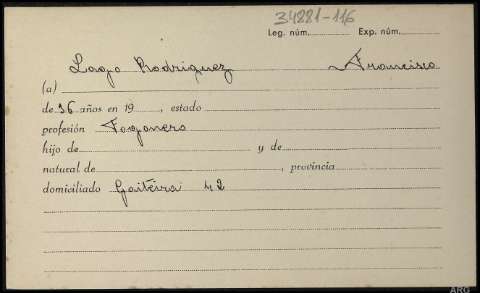 34881-116
Leg. núm. Exp. núm.
Lago Rodriguez Francisco
(a)
de 36 años en 19 , estado
profesión Fogonero
hijo de y de
natural de , provincia
domiciliado Gaiteira 42
ARG